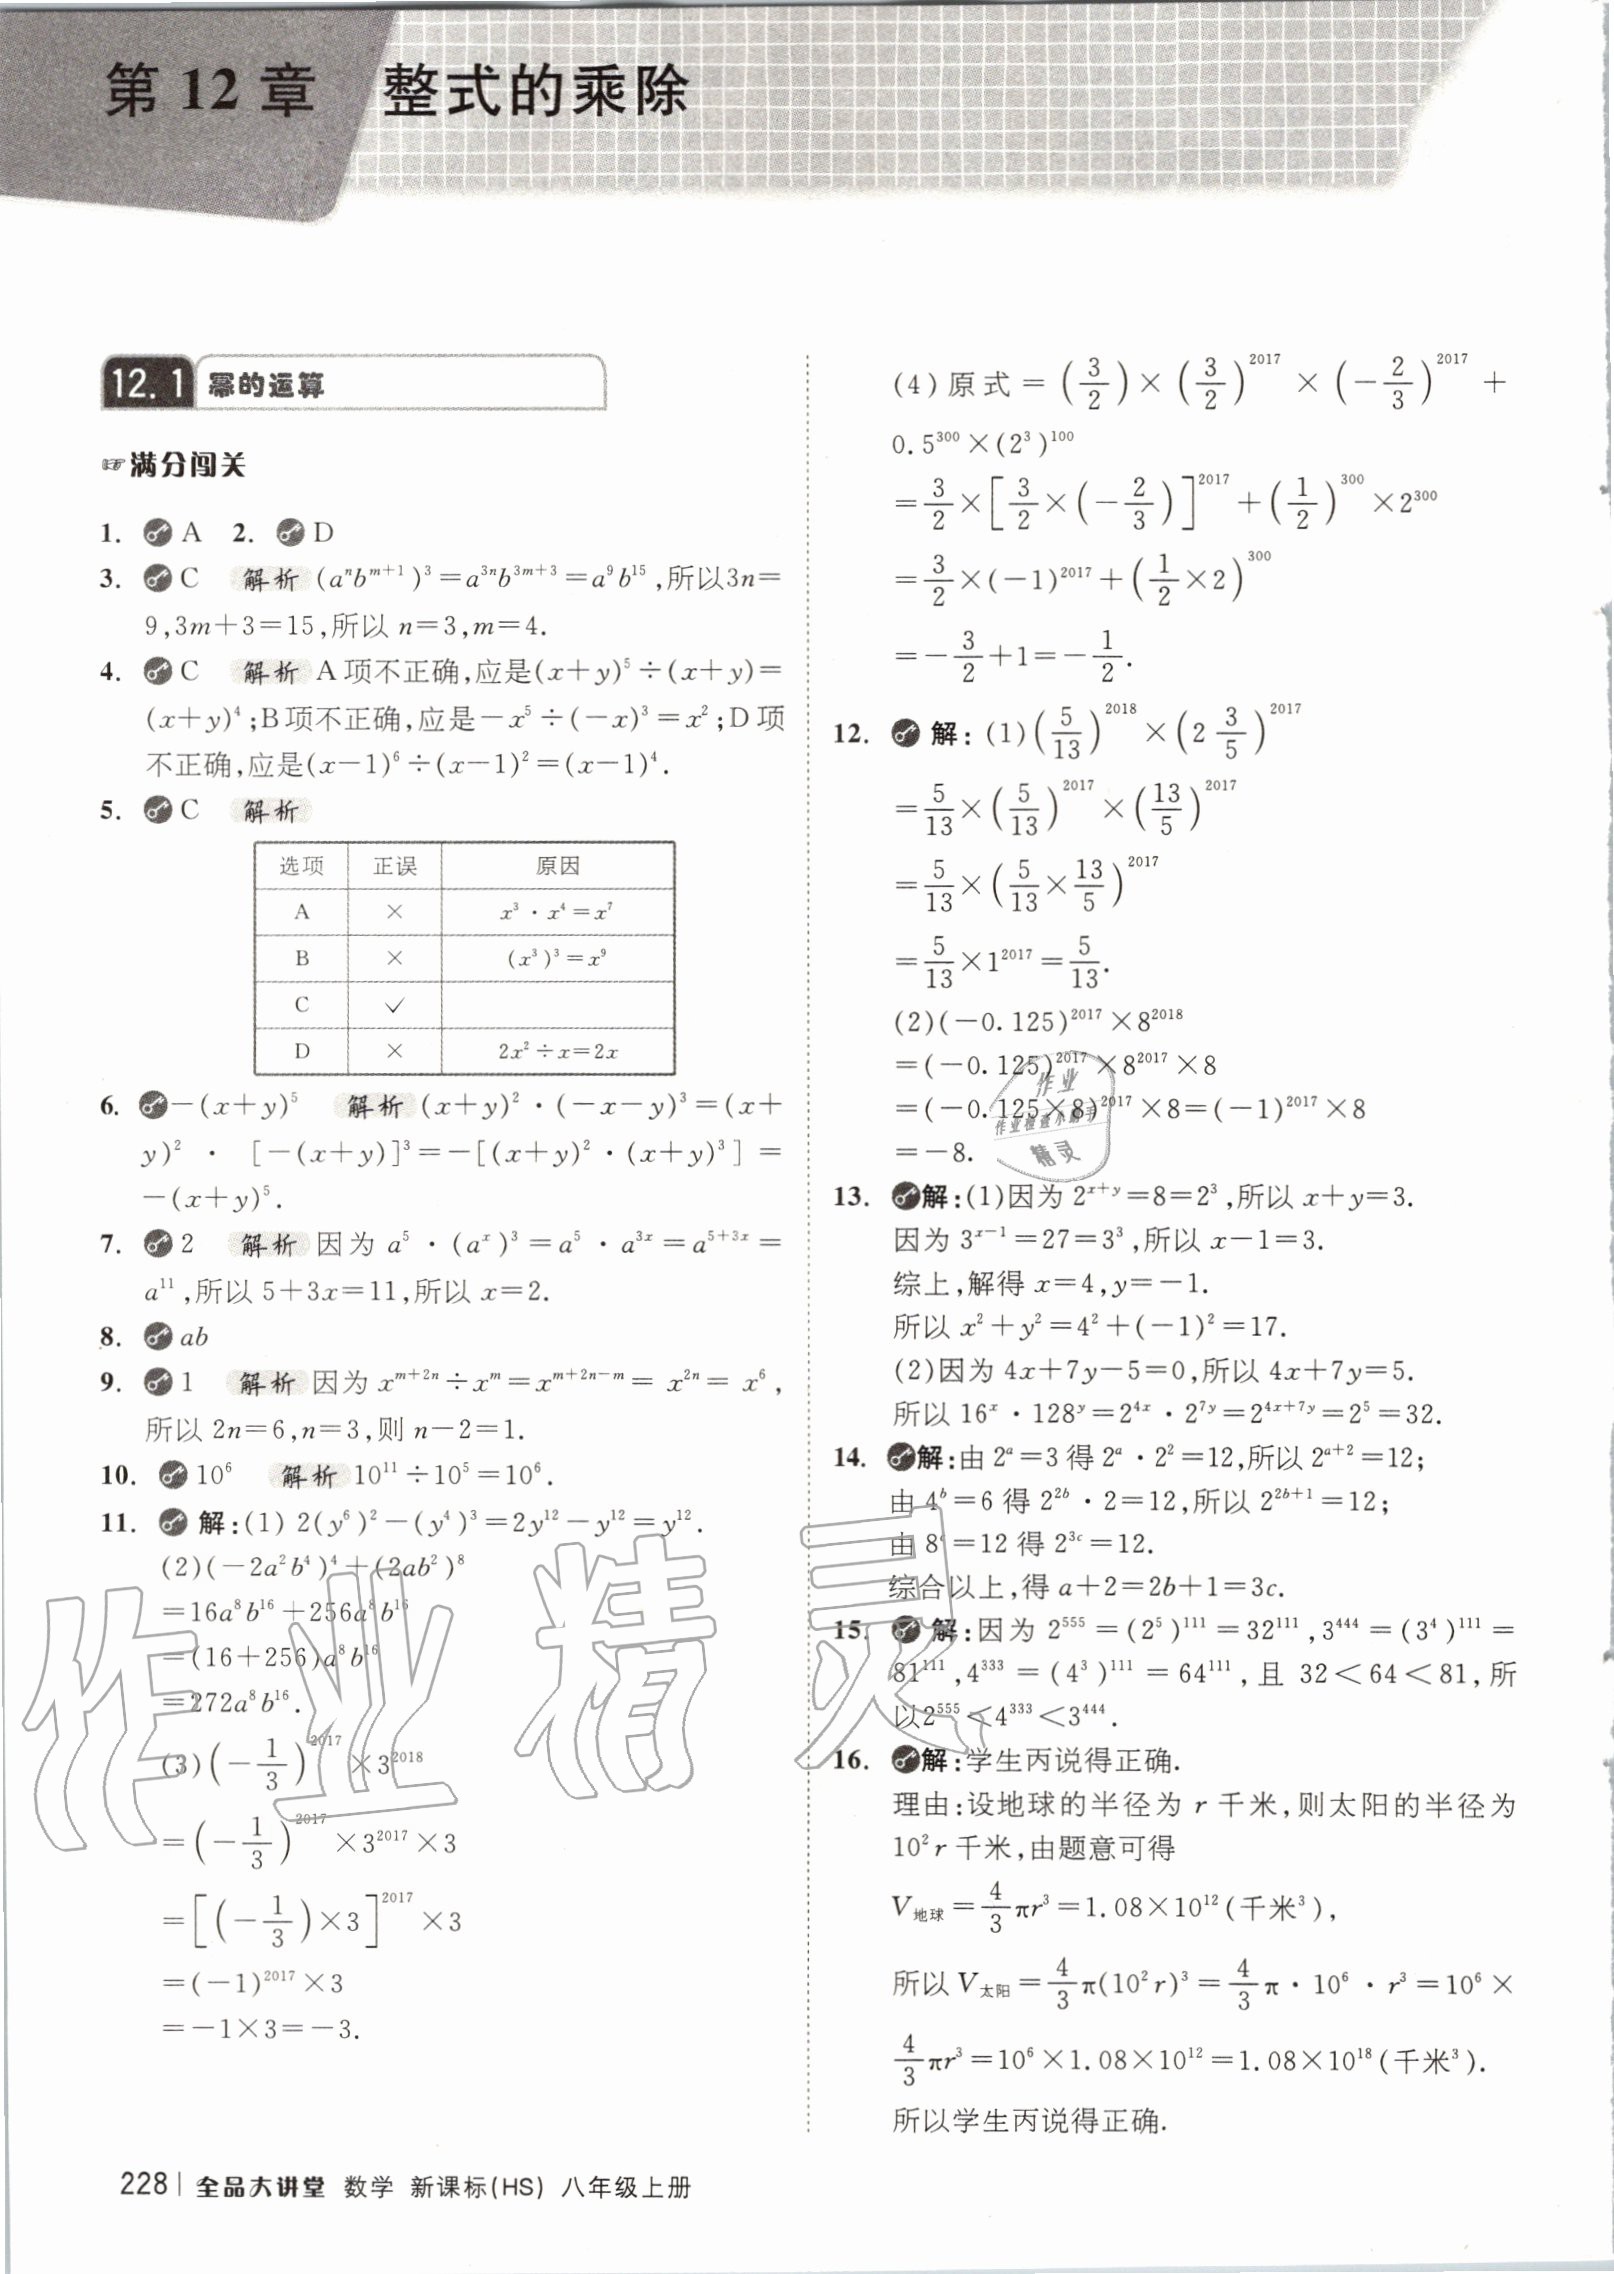 第 12 章　整式的乘除
12.1 幂的运算
☞满分闯关
1. A　2. D
3. C　解析 (aⁿbᵐ⁺¹)³=a³ⁿb³ᵐ⁺³=a⁹b¹⁵,所以3n=
9,3m+3=15,所以 n=3,m=4.
4. C　解析 A 项不正确,应是(x+y)⁵÷(x+y)=
(x+y)⁴;B项不正确,应是-x⁵÷(-x)³=x²;D 项
不正确,应是(x-1)⁶÷(x-1)²=(x-1)⁴.
5. C　解析
选项　正误　原因
A　×　x³·x⁴=x⁷
B　×　(x³)³=x⁹
C　✓
D　×　2x²÷x=2x
6. -(x+y)⁵　解析 (x+y)²·(-x-y)³=(x+
y)²·[-(x+y)]³=-[(x+y)²·(x+y)³]=
-(x+y)⁵.
7. 2　解析 因为 a⁵·(aˣ)³=a⁵·a³ˣ=a⁵⁺³ˣ=
a¹¹,所以 5+3x=11,所以 x=2.
8. ab
9. 1　解析 因为 xᵐ⁺²ⁿ÷xᵐ=xᵐ⁺²ⁿ⁻ᵐ=x²ⁿ=x⁶,
所以 2n=6,n=3,则 n-2=1.
10. 10⁶　解析 10¹¹÷10⁵=10⁶.
11. 解:(1) 2(y⁶)²-(y⁴)³=2y¹²-y¹²=y¹².
(2)(-2a²b⁴)⁴+(2ab²)⁸
=16a⁸b¹⁶+256a⁸b¹⁶
=(16+256)a⁸b¹⁶
=272a⁸b¹⁶.
(3)(-1/3)²⁰¹⁷×3²⁰¹⁸
=(-1/3)²⁰¹⁷×3²⁰¹⁷×3
=[(-1/3)×3]²⁰¹⁷×3
=(-1)²⁰¹⁷×3
=-1×3=-3.
(4)原式=(3/2)×(3/2)²⁰¹⁷×(-2/3)²⁰¹⁷+
0.5³⁰⁰×(2³)¹⁰⁰
=3/2×[3/2×(-2/3)]²⁰¹⁷+(1/2)³⁰⁰×2³⁰⁰
=3/2×(-1)²⁰¹⁷+(1/2×2)³⁰⁰
=-3/2+1=-1/2.
12. 解:(1)(5/13)²⁰¹⁸×(2 3/5)²⁰¹⁷
=5/13×(5/13)²⁰¹⁷×(13/5)²⁰¹⁷
=5/13×(5/13×13/5)²⁰¹⁷
=5/13×1²⁰¹⁷=5/13.
(2)(-0.125)²⁰¹⁷×8²⁰¹⁸
=(-0.125)²⁰¹⁷×8²⁰¹⁷×8
=(-0.125×8)²⁰¹⁷×8=(-1)²⁰¹⁷×8
=-8.
13. 解:(1)因为 2ˣ⁺ʸ=8=2³,所以 x+y=3.
因为 3ˣ⁻¹=27=3³,所以 x-1=3.
综上,解得 x=4,y=-1.
所以 x²+y²=4²+(-1)²=17.
(2)因为 4x+7y-5=0,所以 4x+7y=5.
所以 16ˣ·128ʸ=2⁴ˣ·2⁷ʸ=2⁴ˣ⁺⁷ʸ=2⁵=32.
14. 解:由 2ᵃ=3 得 2ᵃ·2²=12,所以 2ᵃ⁺²=12;
由 4ᵇ=6 得 2²ᵇ·2=12,所以 2²ᵇ⁺¹=12;
由 8ᶜ=12 得 2³ᶜ=12.
综合以上,得 a+2=2b+1=3c.
15. 解:因为 2⁵⁵⁵=(2⁵)¹¹¹=32¹¹¹,3⁴⁴⁴=(3⁴)¹¹¹=
81¹¹¹,4³³³=(4³)¹¹¹=64¹¹¹,且 32<64<81,所
以2⁵⁵⁵<4³³³<3⁴⁴⁴.
16. 解:学生丙说得正确.
理由:设地球的半径为 r 千米,则太阳的半径为
10²r 千米,由题意可得
V地球=4/3πr³=1.08×10¹²(千米³),
所以 V太阳=4/3π(10²r)³=4/3π·10⁶·r³=10⁶×
4/3πr³=10⁶×1.08×10¹²=1.08×10¹⁸(千米³).
所以学生丙说得正确.
作业精灵
作业
作业检查小助手
精灵
228 | 全品大讲堂　数学　新课标(HS)　八年级上册